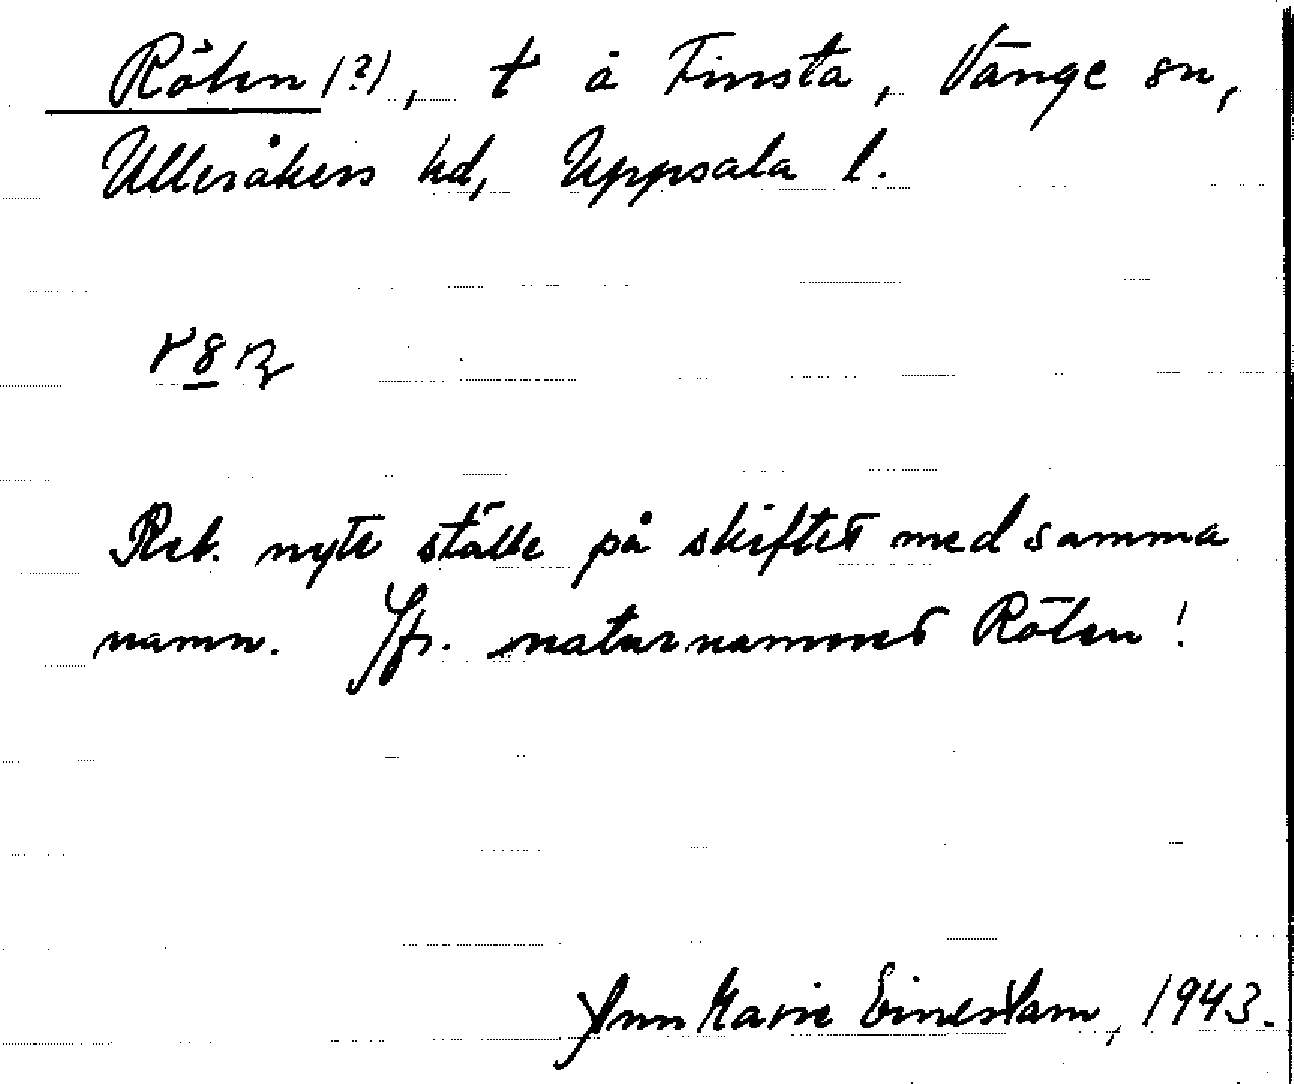 Röten (?), t å Finsta, Vänge sn,
Ulleråkers hd, Uppsala l.
Reb. nytt ställe på skiftet med samma
namn. Jfr. naturnamnet Röten!
Ann Marie 1943.